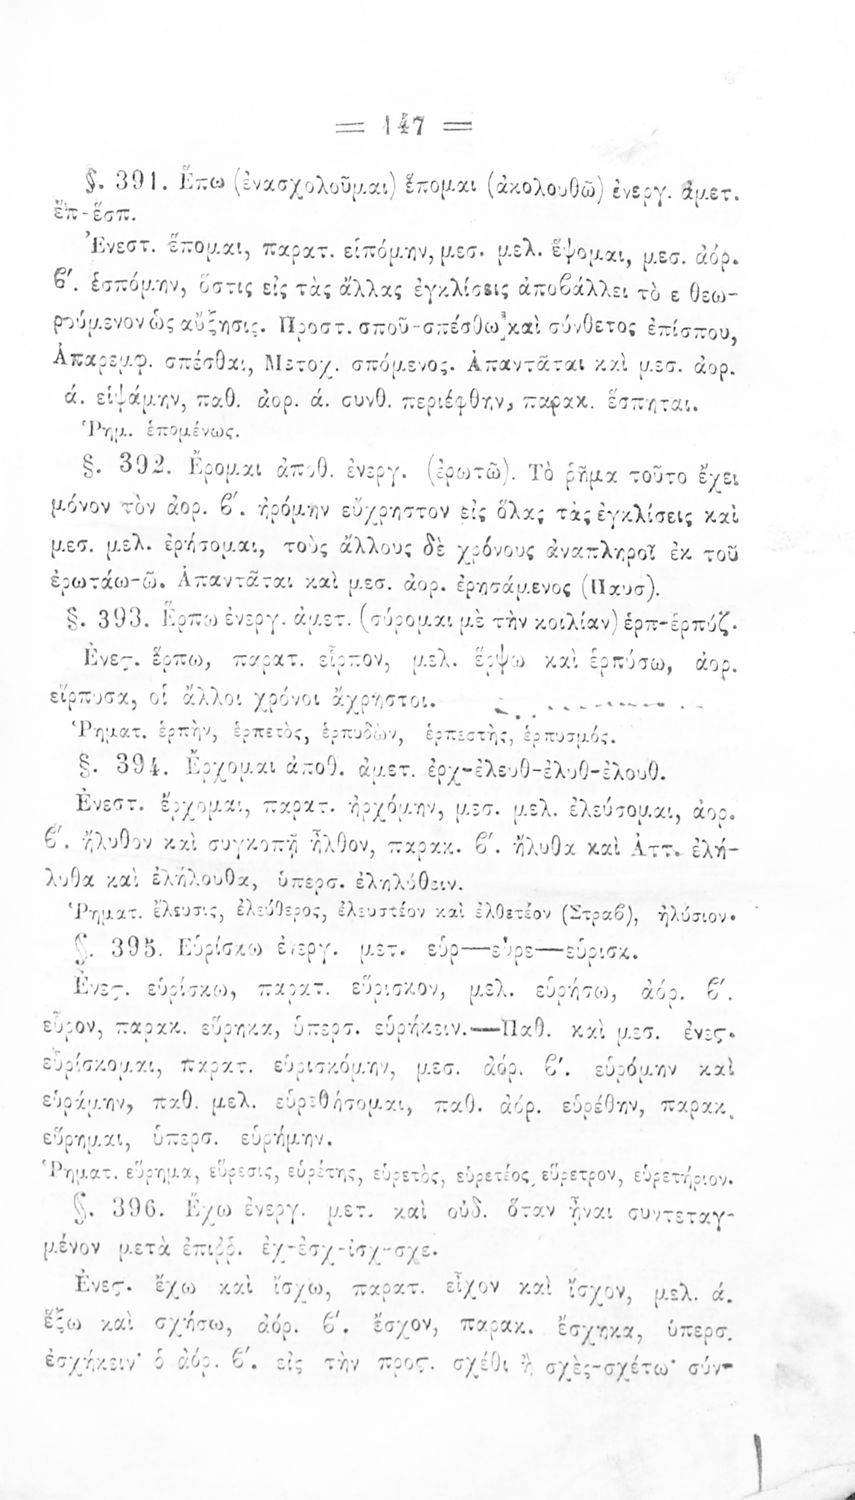 = 147 =
§. 391. Ἕπω (ἐνασχολοῦμαι) ἕπομαι (ἀκολουθῶ) ἐνεργ. ἀμετ.
ἕπ-ἑσπ.
Ἐνεστ. ἕπομαι, παρατ. εἱπόμην, μεσ. μελ. ἕψομαι, μεσ. ἀόρ.
β'. ἑσπόμην, ὅστις εἰς τὰς ἄλλας ἐγκλίσεις ἀποβάλλει τὸ ε θεω-
ρούμενον ὡς αὔξησις. Προστ. σποῦ-σπέσθω καὶ σύνθετος ἐπίσπου,
Ἀπαρεμφ. σπέσθαι, Μετοχ. σπόμενος. Ἀπαντᾶται καὶ μεσ. ἀορ.
ά. εἱψάμην, παθ. ἀορ. ά. συνθ. περιέφθην, παρακ. ἕσπηται.
Ῥημ. ἑπομένως.
§. 392. Ἔρομαι ἀποθ. ἐνεργ. (ἐρωτῶ). Τὸ ῥῆμα τοῦτο ἔχει
μόνον τὸν ἀορ. β'. ἠρόμην εὔχρηστον εἰς ὅλας τὰς ἐγκλίσεις καὶ
μεσ. μελ. ἐρήσομαι, τοὺς ἄλλους δὲ χρόνους ἀναπληροῖ ἐκ τοῦ
ἐρωτάω-ῶ. Ἀπαντᾶται καὶ μεσ. ἀορ. ἐρησάμενος (Παυσ).
§. 393. Ἕρπω ἐνεργ. ἀμετ. (σύρομαι μὲ τὴν κοιλίαν) ἑρπ-ἑρπύζ.
Ἐνεϛ. ἕρπω, παρατ. εἷρπον, μελ. ἕρψω καὶ ἑρπύσω, ἀορ.
εἵρπυσα, οἱ ἄλλοι χρόνοι ἄχρηστοι.
Ῥηματ. ἑρπὴν, ἑρπετὸς, ἑρπυδὼν, ἑρπεστὴς, ἑρπυσμός.
§. 394. Ἔρχομαι ἀποθ. ἀμετ. ἐρχ-ἐλευθ-ἐλυθ-ἐλουθ.
Ἐνεστ. ἔρχομαι, παρατ. ἠρχόμην, μεσ. μελ. ἐλεύσομαι, ἀορ.
β'. ἤλυθον καὶ συγκοπῇ ἦλθον, παρακ. β'. ἤλυθα καὶ Ἀττ. ἐλή-
λυθα καὶ ἐλήλουθα, ὑπερσ. ἐληλύθειν.
Ῥηματ. ἔλευσις, ἐλεύθερος, ἐλευστέον καὶ ἐλθετέον (Στραβ), ἠλύσιον.
§. 395. Εὑρίσκω ἐνεργ. μετ. εὑρ—εὑρε—εὑρισκ.
Ἐνεϛ. εὑρίσκω, παρατ. εὕρισκον, μελ. εὑρήσω, ἀόρ. β'.
εὗρον, παρακ. εὕρηκα, ὑπερσ. εὑρήκειν.—Παθ. καὶ μεσ. ἐνεϛ.
εὑρίσκομαι, παρατ. εὑρισκόμην, μεσ. ἀόρ. β'. εὑρόμην καὶ
εὑράμην, παθ. μελ. εὑρεθήσομαι, παθ. ἀόρ. εὑρέθην, παρακ.
εὕρημαι, ὑπερσ. εὑρήμην.
Ῥηματ. εὕρημα, εὕρεσις, εὑρέτης, εὑρετὸς, εὑρετέος, εὕρετρον, εὑρετήριον.
§. 396. Ἔχω ἐνεργ. μετ. καὶ οὐδ. ὅταν ᾖναι συντεταγ-
μένον μετὰ ἐπιῤῥ. ἐχ-ἐσχ-ἰσχ-σχε.
Ἐνεϛ. ἔχω καὶ ἴσχω, παρατ. εἶχον καὶ ἴσχον, μελ. ά.
ἕξω καὶ σχήσω, ἀόρ. β'. ἔσχον, παρακ. ἔσχηκα, ὑπερσ.
ἐσχήκειν· ὁ ἀόρ. β'. εἰς τὴν προϛ. σχέθι ἢ σχὲς-σχέτω· σύν-